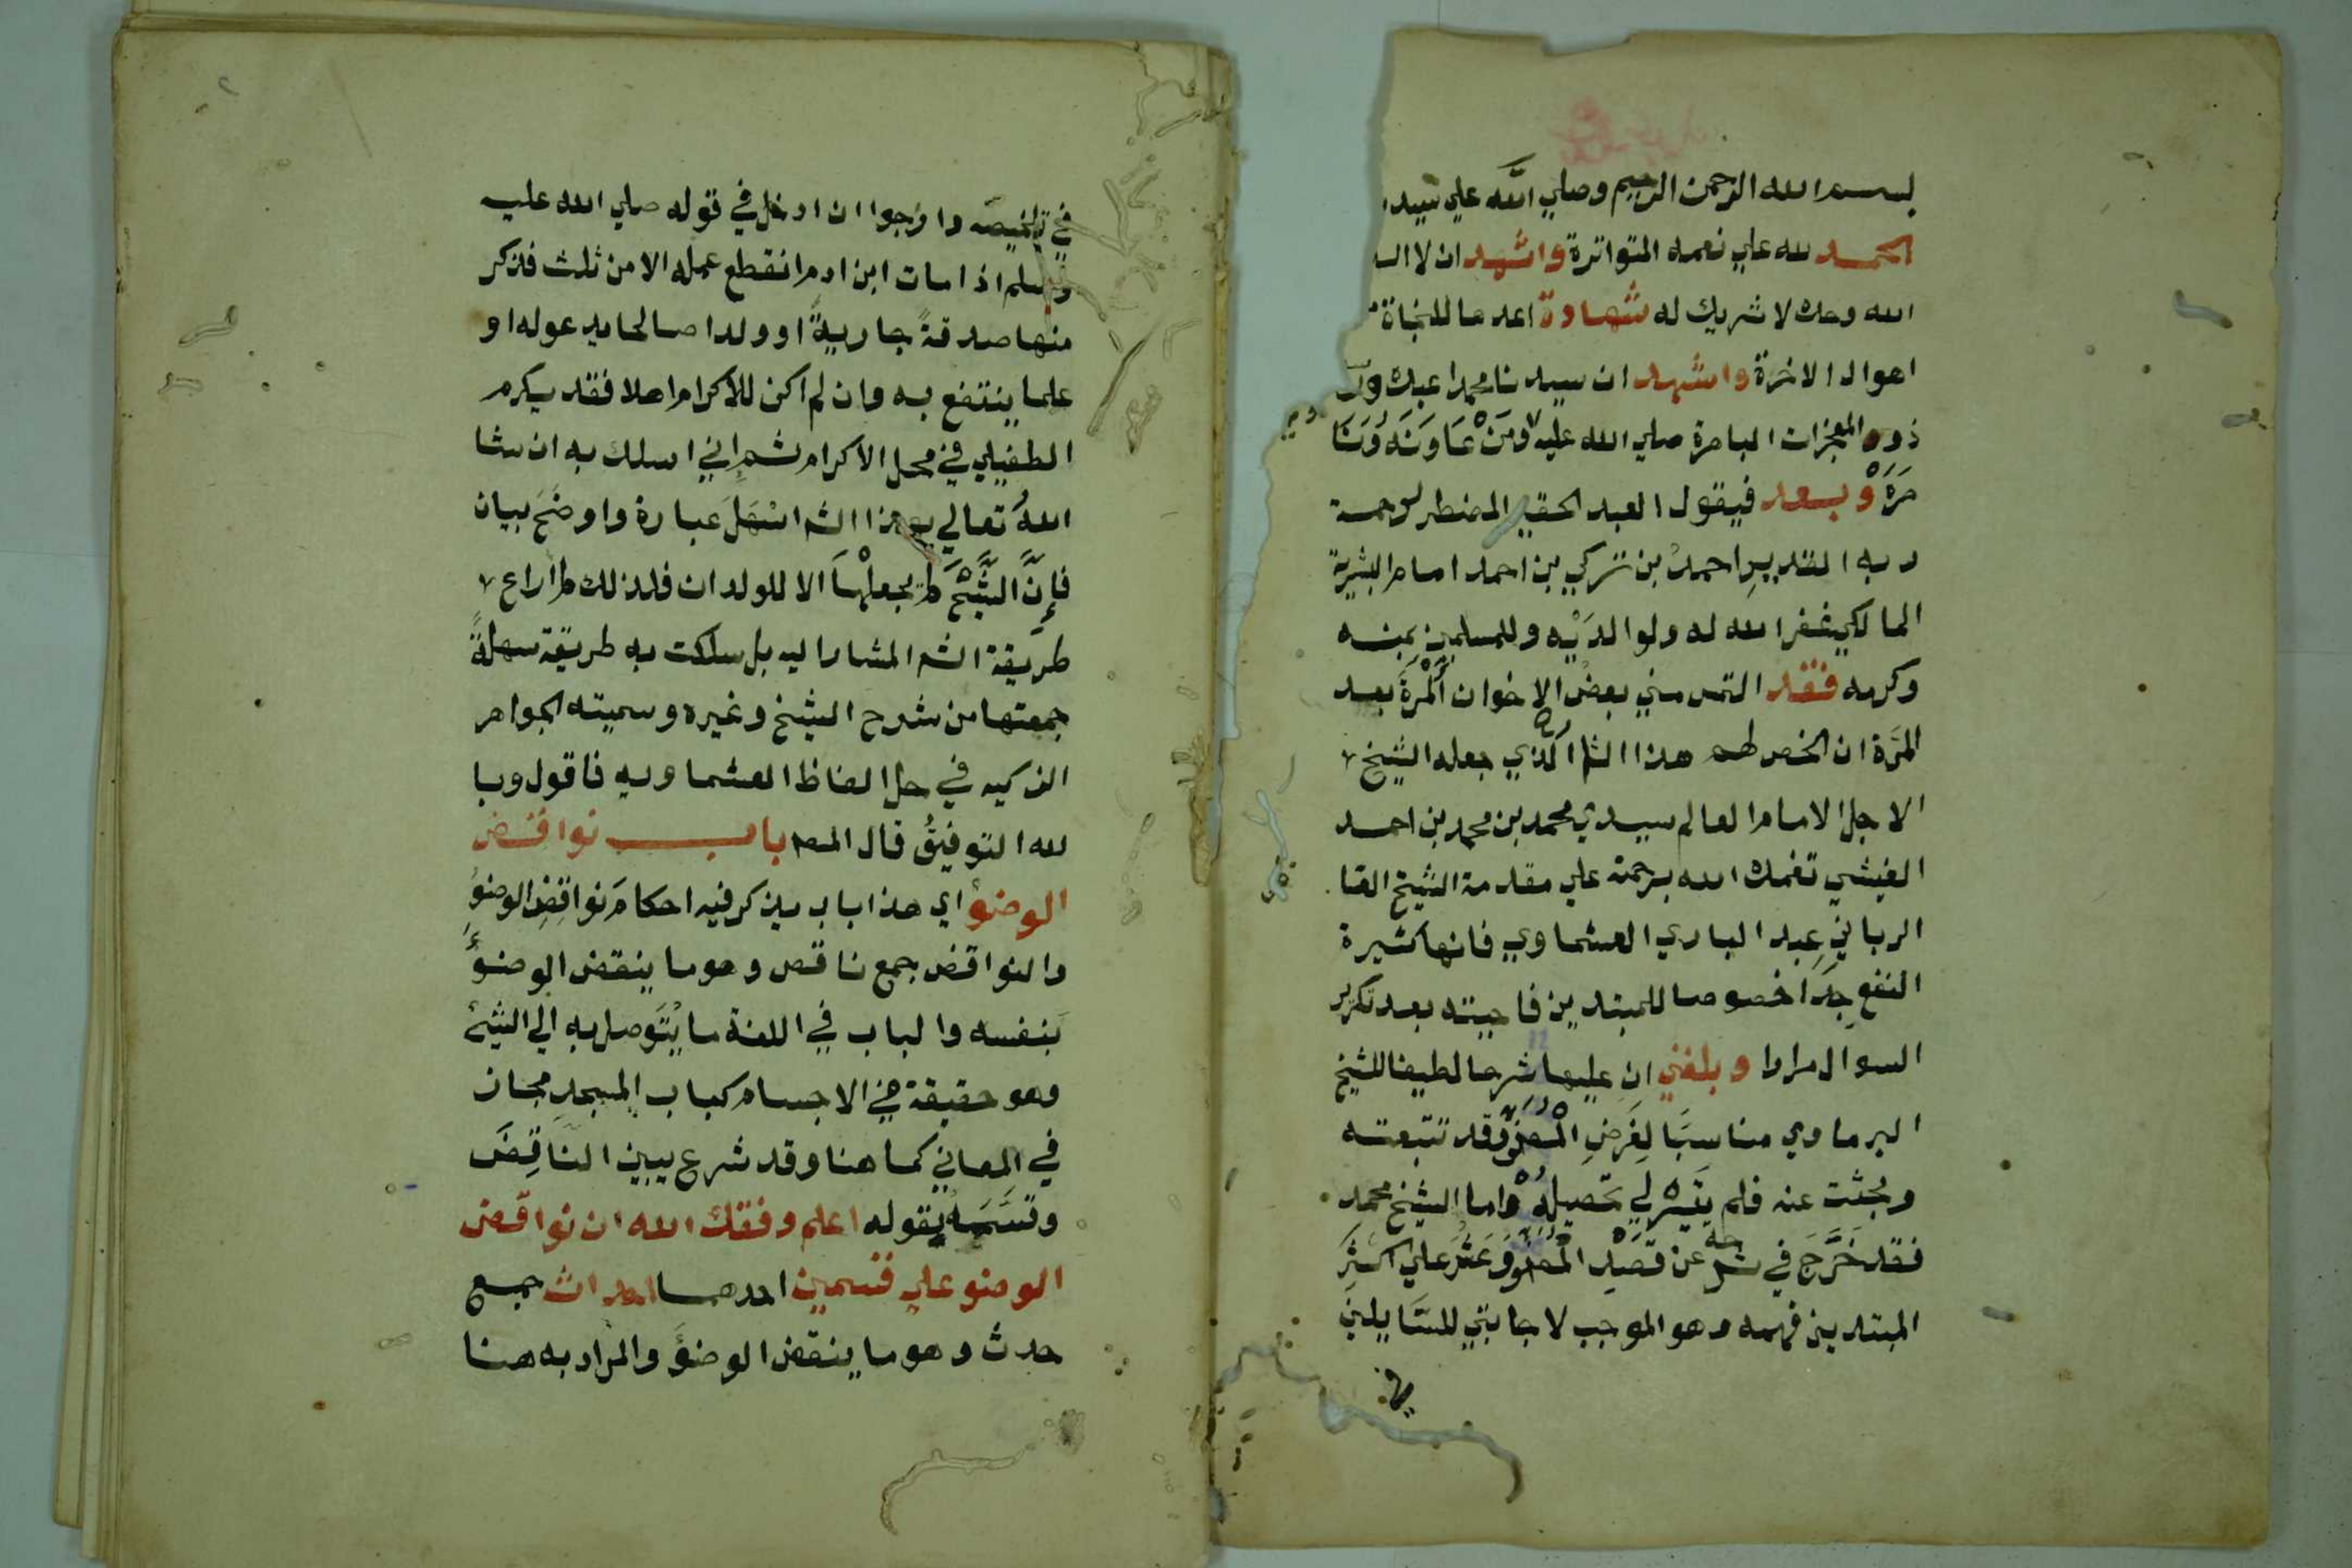 بسم الله الرحمن الرحيم وصلي الله علي سيدنا
الحمد لله علي نعمه المتواترة واشهد ان لا اله
الله وحده لا شريك له شهادة اعدها للنجاة
اهوال الاخرة واشهد ان سيدنا محمدا عبده
ذوو المعجزات الباهرة صلي الله عليه ومن عاونه ونا
صره وبعد فيقول العبد الحقير المضطر لرحمة
ربه القدير احمد بن تركي بن احمد امام البشرية
المالكي غفر الله له ولوالديه وللمسلمين بمنه
وكرمه فقد التمس مني بعض الاخوان المرة بعد
المرة ان الخص لهم هذا الش الذي جعله الشيخ
الاجل الامام العالم سيدي محمد بن محمد بن احمد
الفيشي تغمده الله برحمة علي مقدمة الشيخ القا
الرباني عبد الباري العشماوي فانها كثيرة
النفع جدا خصوصا للمبتدين فاجبته بعد تكرير
السوال مرارا وبلغني ان عليها شرحا لطيفا للشيخ
البرماوي مناسبا لغرض المص وقد تتبعته
وبحثت عنه فلم يتيسر لي تحصيله واما الشيخ محمد
فقد خرج في شرحه عن قصد المص وعثر علي اكثر
المبتديين فهمه وهو الموجب لاجابتي للسايلين
في
في تلخيصه وارجوا ان ادخل في قوله صلي الله عليه
وسلم اذا مات ابن ادم انقطع عمله الا من ثلث فذكر
منها صدقة جارية او ولدا صالحا يدعوله او
علما ينتفع به وان لم اكن للاكرام اهلا فقد يكرم
الطفيلي في محل الاكرام ثم اني اسلك به ان شا
الله تعالي بهذا الش اسهل عبارة واوضح بيان
فإن الشيخ لم يجعلها الا للولدان فلذلك لم اراع
طريقة الش المشار اليه بل سلكت به طريقة سهلة
جمعتها من شرح الشيخ وغيره وسميته الجواهر
الزكيه في حل الفاظ العشماويه فاقول وبا
لله التوفيق قال المص باب نواقض
الوضوء اي هذا باب يذكر فيه احكام نواقض الوضوء
والنواقض جمع ناقض وهو ما ينقض الوضوء
بنفسه والباب في اللغة ما يتوصل به الي الشيئ
وهو حقيقة في الاجسام كباب المسجد مجاز
في المعاني كما هنا وقد شرع يبين الناقض
وقسمه بقوله اعلم وفقك الله ان نواقض
الوضو علي قسمين احدهما احداث جمع
حدث وهو ما ينقض الوضوء والمراد به هنا